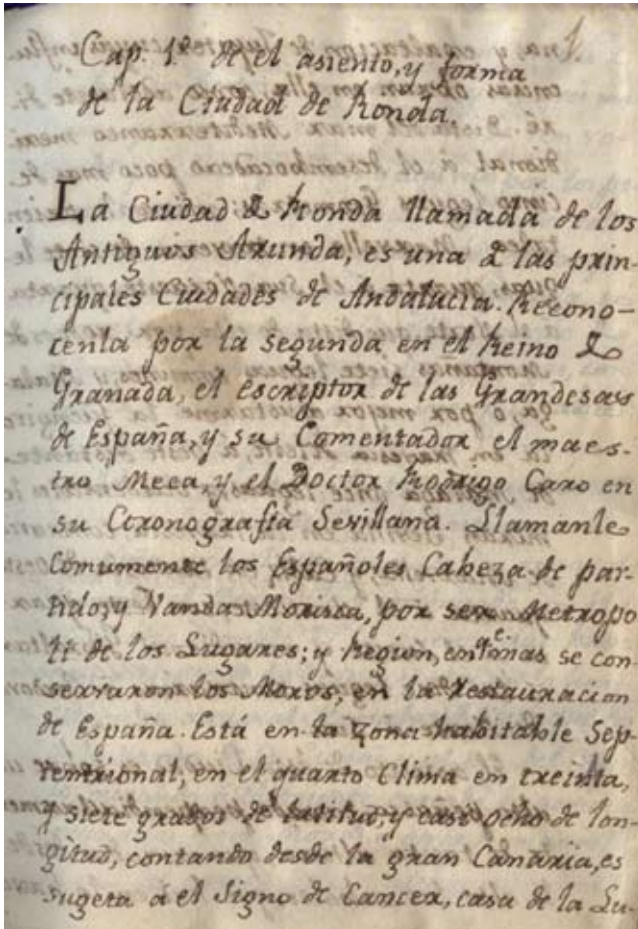 1.
Cap. 1º de el asiento, y forma
de la Ciudad de Ronda.
La Ciudad de Ronda llamada de los
Antiguos Arunda, es una de las prin-
cipales Ciudades de Andalucia. Recono-
cenla por la segunda en el Reino de
Granada, el escriptor de las Grandesas
de España, y su Comentador el maes-
tro Mesa, y el Doctor Rodrigo Caro en
su Coronografia Sevillana. Llamanle
Comumente los Españoles Cabeza de par-
tido, y Vanda Morisca, por ser Metropo
li de los Lugares; y Region, en qe mas se con
servaron los Moros, en la Restauracion
de España. Está en la zona habitable Sep-
tentrional, en el quarto Clima en treinta,
y siete grados de latitud, y casi ocho de lon-
gitud, contando desde la gran Canaria, es
sugeta á el Signo de Cancer, casa de la Lu-